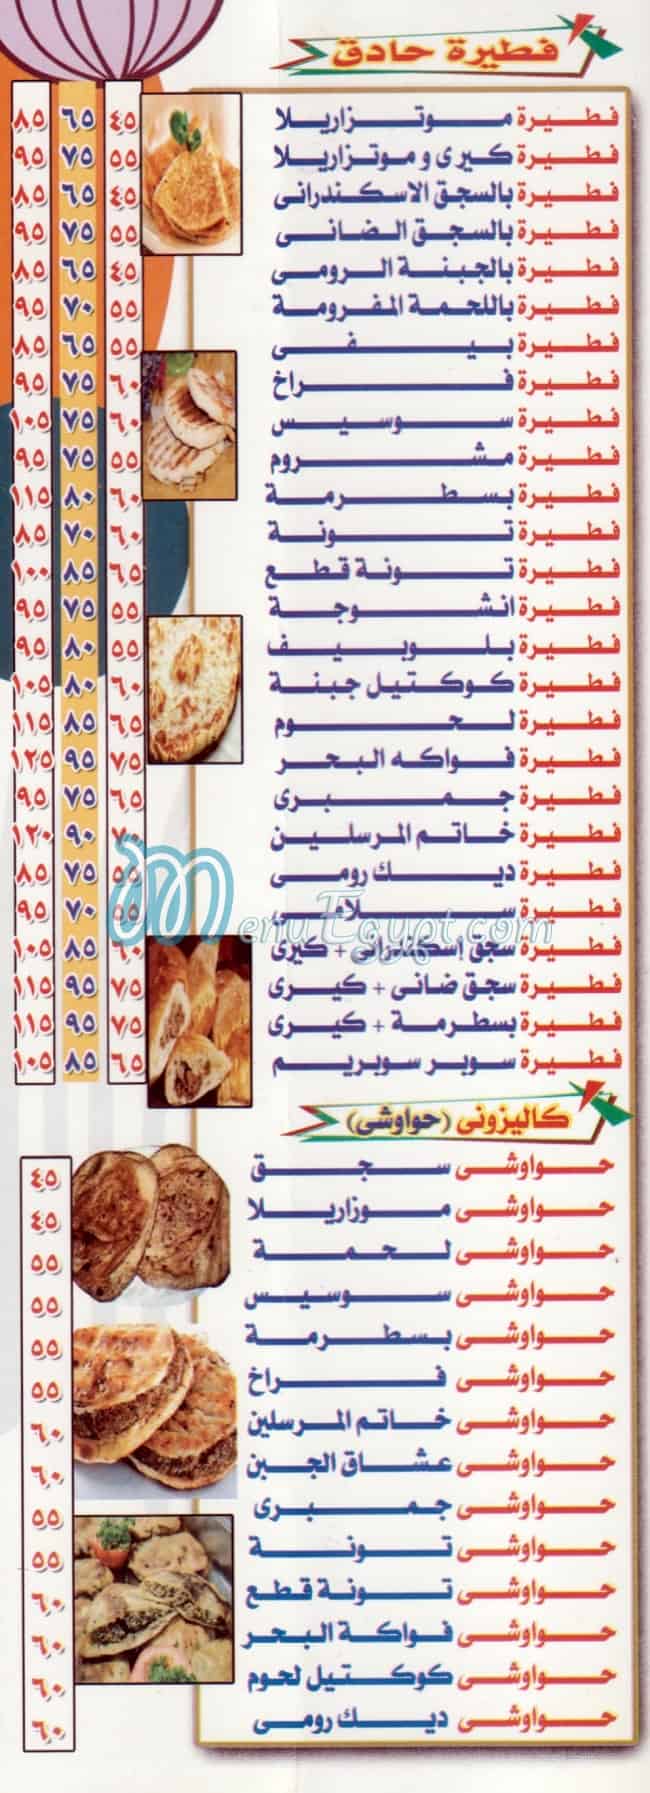 فطيرة حادق
فطيرة موتزاريلا ٤٥ ٦٥ ٨٥
فطيرة كيرى و موتزاريلا ٥٥ ٧٥ ٩٥
فطيرة بالسجق الاسكندرانى ٤٥ ٦٥ ٨٥
فطيرة بالسجق الضانى ٥٥ ٧٥ ٩٥
فطيرة بالجبنة الرومى ٤٥ ٦٥ ٨٥
فطيرة باللحمة المفرومة ٥٥ ٧٠ ٩٥
فطيرة بيفى ٥٥ ٦٥ ٨٥
فطيرة فراخ ٦٠ ٧٥ ٩٥
فطيرة سوسيس ٦٠ ٧٥ ١٠٥
فطيرة مشروم ٥٥ ٧٥ ٩٥
فطيرة بسطرمة ٦٠ ٨٠ ١١٥
فطيرة تونة ٦٠ ٧٠ ٨٥
فطيرة تونة قطع ٦٥ ٨٥ ١٠٠
فطيرة انشوجة ٥٥ ٧٥ ٩٥
فطيرة بلوبيف ٥٥ ٨٠ ٩٥
فطيرة كوكتيل جبنة ٦٠ ٨٠ ١٠٥
فطيرة لحوم ٦٥ ٨٥ ١١٥
فطيرة فواكه البحر ٧٥ ٩٥ ١٢٥
فطيرة جمبرى ٦٥ ٧٥ ٩٥
فطيرة خاتم المرسلين ٧٠ ٩٠ ١٢٠
فطيرة ديك رومى ٥٥ ٧٥ ٨٥
فطيرة سلامى ٥٥ ٧٠ ٩٥
MenuEgypt.com
فطيرة سجق إسكندرانى + كيرى ٦٠ ٨٥ ١٠٥
فطيرة سجق ضانى + كيرى ٧٥ ٩٥ ١١٥
فطيرة بسطرمة + كيرى ٧٥ ٩٥ ١١٥
فطيرة سوبر سوبريم ٦٥ ٨٥ ١٠٥
كاليزونى (حواوشى)
حواوشى سجق ٤٥
حواوشى موزاريلا ٤٥
حواوشى لحمة ٥٥
حواوشى سوسيس ٥٥
حواوشى بسطرمة ٥٥
حواوشى فراخ ٥٥
حواوشى خاتم المرسلين ٦٠
حواوشى عشاق الجبن ٦٠
حواوشى جمبرى ٥٥
حواوشى تونة ٥٥
حواوشى تونة قطع ٦٠
حواوشى فواكة البحر ٦٠
حواوشى كوكتيل لحوم ٦٠
حواوشى ديك رومى ٦٠